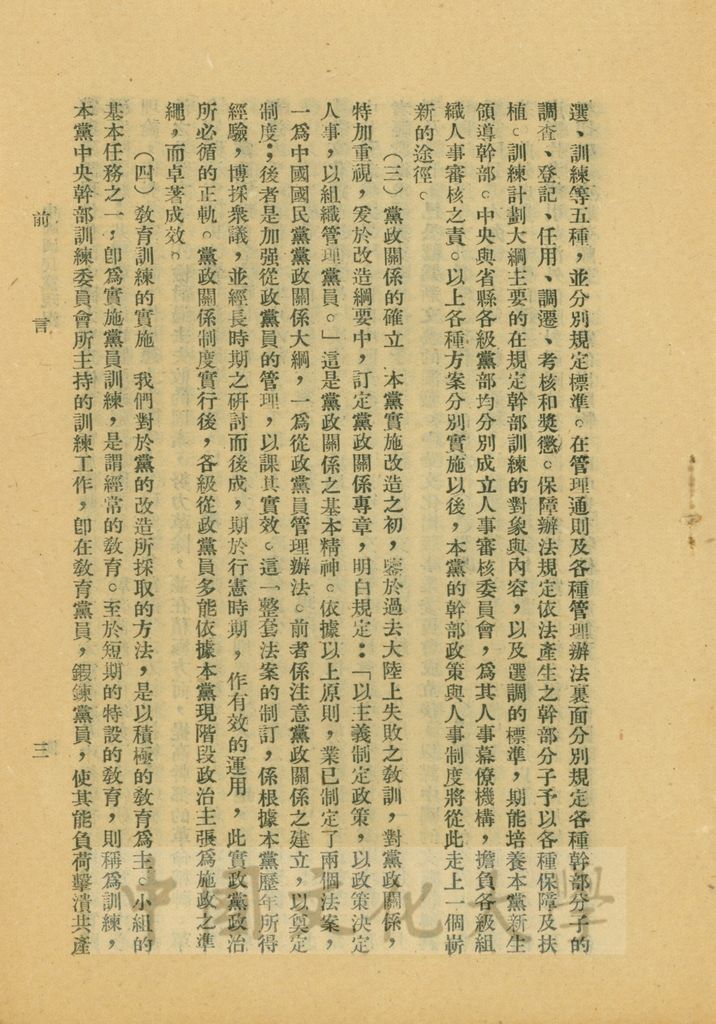 選、訓練等五種，並分別規定標準。在管理通則及各種管理辦法裏面分別規定各種幹部分子的
調查、登記、任用、調遷、考核和獎懲。保障辦法規定依法產生之幹部分子予以各種保障及扶
植。訓練計劃大綱主要的在規定幹部訓練的對象與內容，以及選調的標準，期能培養本黨新生
領導幹部。中央與省縣各級黨部均分別成立人事審核委員會，為其人事幕僚機構，擔負各級組
織人事審核之責。以上各種方案分別實施以後，本黨的幹部政策與人事制度將從此走上一個嶄
新的途徑。
（三）黨政關係的確立　本黨實施改造之初，鑒於過去大陸上失敗之教訓，對黨政關係，
特加重視，爰於改造綱要中，訂定黨政關係專章，明白規定：「以主義制定政策，以政策決定
人事，以組織管理黨員。」這是黨政關係之基本精神。依據以上原則，業已制定了兩個法案，
一為中國國民黨黨政關係大綱，一為從政黨員管理辦法。前者係注意黨政關係之建立，以奠定
制度；後者是加强從政黨員的管理，以課其實效。這一整套法案的制訂，係根據本黨歷年所得
經驗，博採衆議，並經長時期之研討而後成，期於行憲時期，作有效的運用，此實政黨政治
所必循的正軌。黨政關係制度實行後，各級從政黨員多能依據本黨現階段政治主張為施政之準
繩，而卓著成效。
（四）教育訓練的實施　我們對於黨的改造所採取的方法，是以積極的教育為主。小組的
基本任務之一，卽為實施黨員訓練，是謂經常的教育。至於短期的特設的教育，則稱為訓練，
本黨中央幹部訓練委員會所主持的訓練工作，卽在教育黨員，鍜鍊黨員，使其能負荷擊潰共產
前言
三
中國文化大學